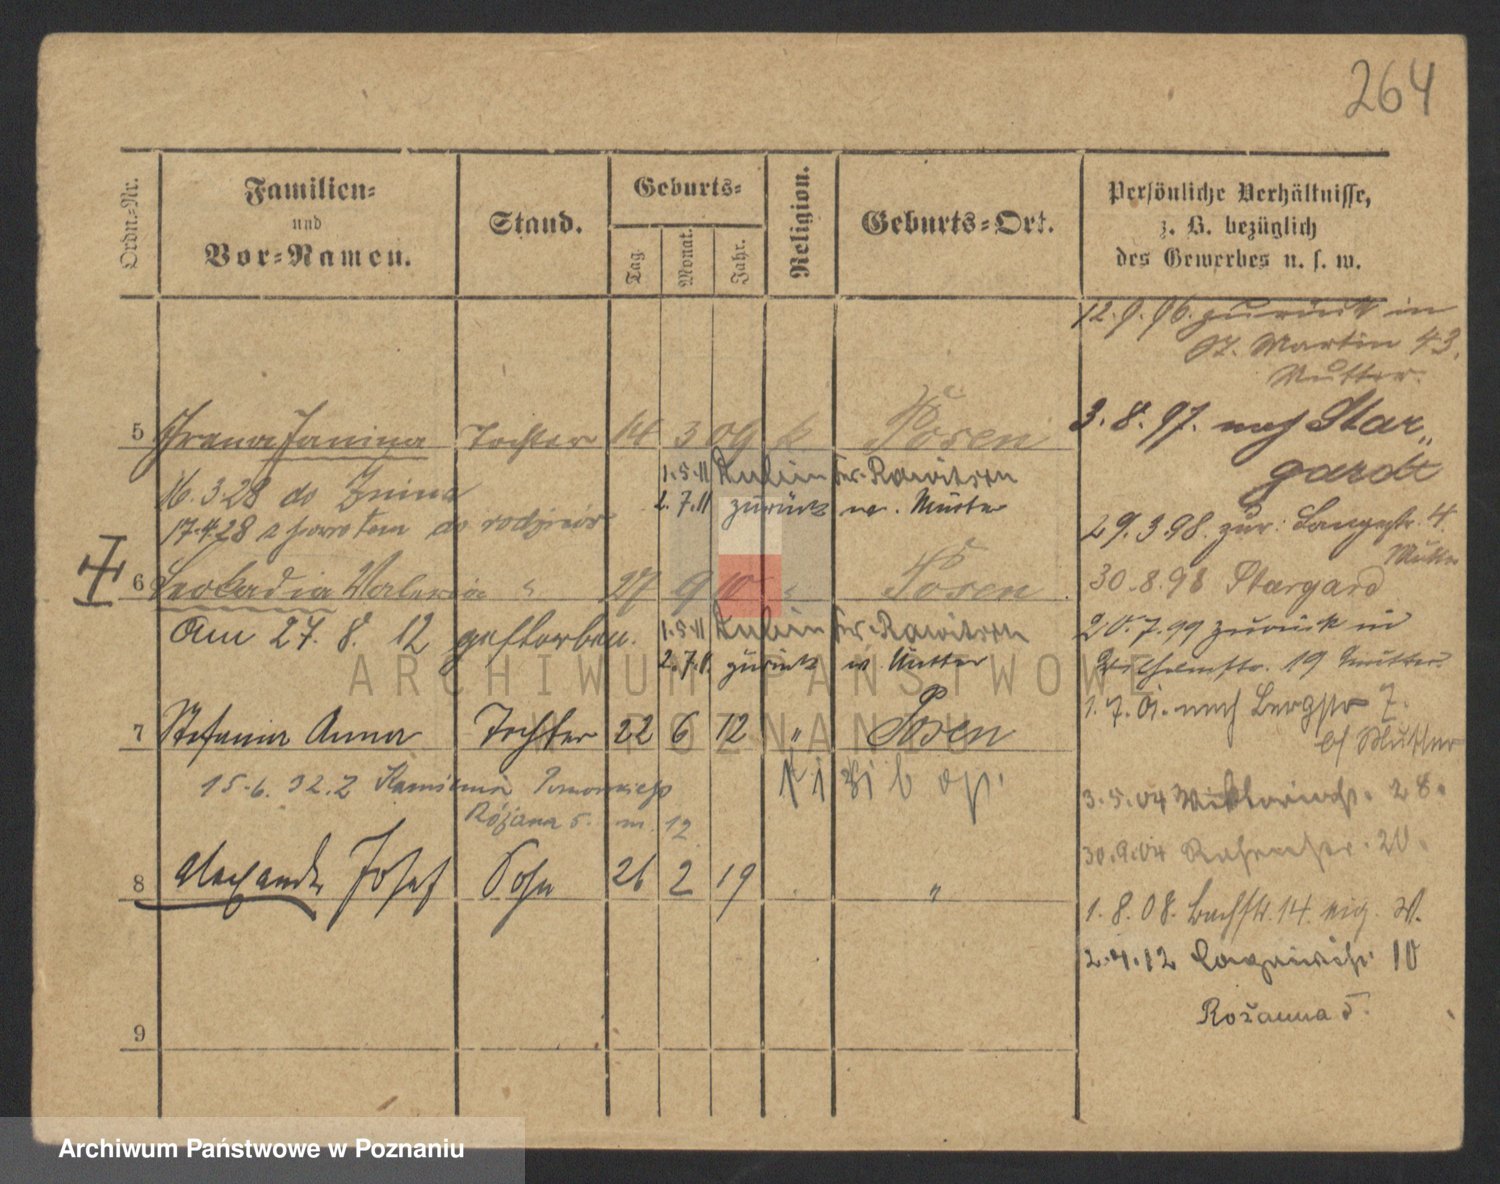 264
Ordn.-Nr.
Familien-
und
Vor-Namen.
Stand.
Geburts-
Tag.
Monat.
Jahr.
Religion.
Geburts-Ort.
Persönliche Verhältnisse,
z. B. bezüglich
des Gewerbes u. s. w.
12.9.96. zurück in
St. Martin 43.
Mutter.
5 Irena Janina Tochter 14 3 09 k Posen
3.8.97. nach Star„
gardt
16.3.28 do Żnina
1.5.11 Kr. Rawitsch
2.7.11 zurück m. Mutter
17.4.28 z powrotem do rodziców
29.3.98. zur. Langestr. 4.
Mutter
6 Leokadia Valeria " 27 9 10 " Posen
30.8.98 Stargard
Am 27.8.12 gestorben.
1.5.11 Kr. Rawitsch
2.7.11. zurück m. Mutter
20.7.99 zurück in
Wilhelmstr. 19 Mutter.
ARCHIWUM PAŃSTWOWE
W POZNANIU
7 Stefania Anna Tochter 22 6 12 " Posen
1.7.01. nach Bergstr 7.
b/ Mutter
15.6.32. Z Kamienia Pomorskiego
Różana 5. m. 12
3.5.04 Viktoriastr. 28.
30.9.04 20.
8 Alexander Josef Sohn 26 2 19 "
1.8.08. Bachstr. 14. eig. W.
2.4.12 10
Rożanna 5.
9
Archiwum Państwowe w Poznaniu